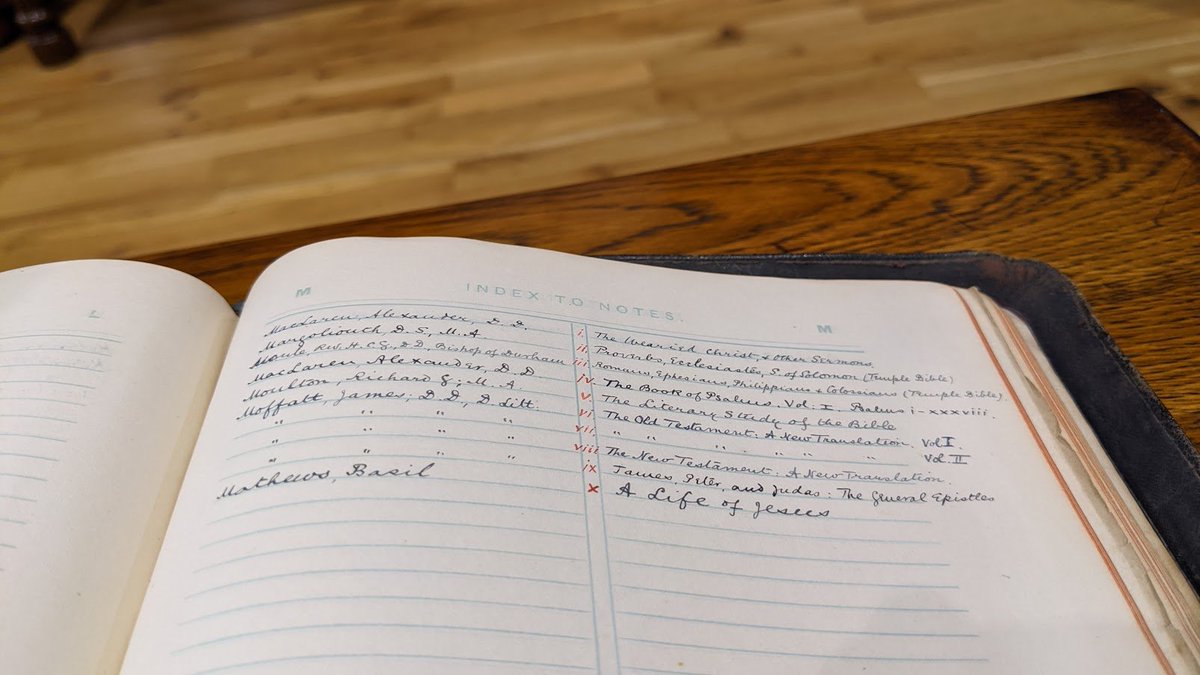 L
M INDEX TO NOTES. M
Maclaren, Alexander, D.D. i. The Wearied Christ, & Other Sermons.
Margoliouth D.S., M.A ii. Proverbs, Ecclesiastes, S. of Solomon (Temple Bible)
Moule, Rev. H.C.G., D.D. Bishop of Durham iii Romans, Ephesians, Philippians & Colossians (Temple Bible).
Maclaren Alexander, D.D iv. The Book of Psalms. Vol. I. Psalms i-xxxviii.
Moulton, Richard G; M.A. v The Literary Study of the Bible
Moffatt, James; D.D., D Litt. vi The Old Testament: A New Translation. Vol I.
" " " " vii " " " " " " Vol. II
" " " " viii The New Testament: A New Translation.
" " " " ix James, Peter, and Judas: The General Epistles
Mathews, Basil x A Life of Jesus